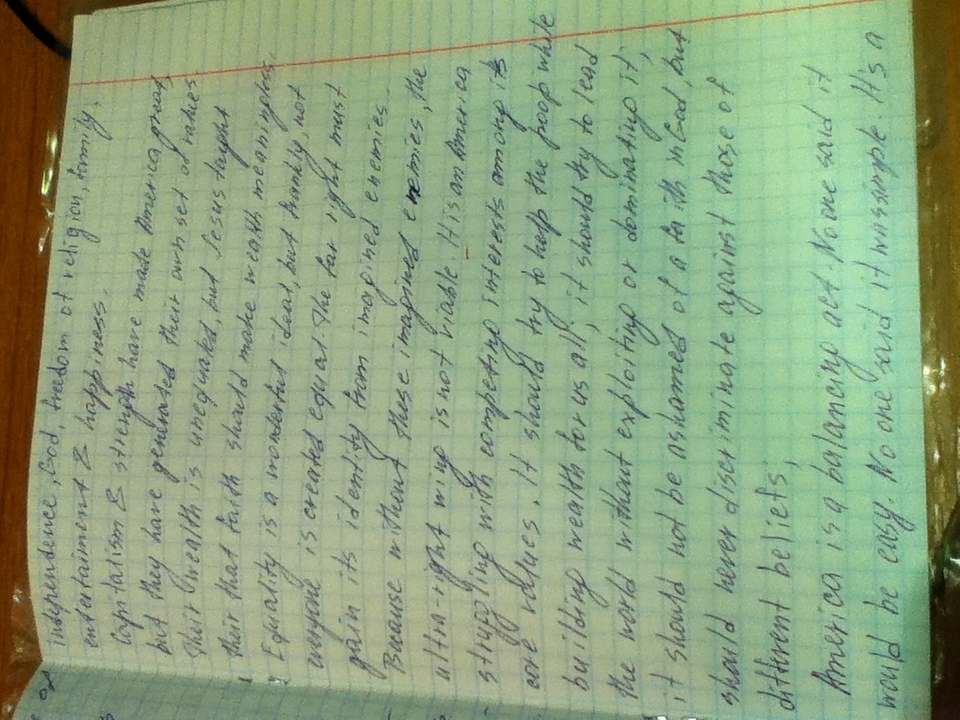 independence, God, freedom of religion, family,
entertainment & happiness.
Capitalism & strength have made America great,
but they have generated their own set of values
Their wealth is unequaled, but Jesus taught
their that faith should make wealth meaningless.
Equality is a wonderful ideal, but frankly, not
everyone is created equal. The far right must
gain its identity from imagined enemies.
Because without these imagined enemies, the
ultra-right wing is not viable. It is an America
struggling with competing interests among its
core values. It should try to help the poor while
building wealth for us all; it should try to lead
the world without exploiting or dominating it;
it should not be ashamed of a faith in God, but
should never discriminate against those of
different beliefs,
America is a balancing act. No one said it
would be easy. No one said it was simple. It's a